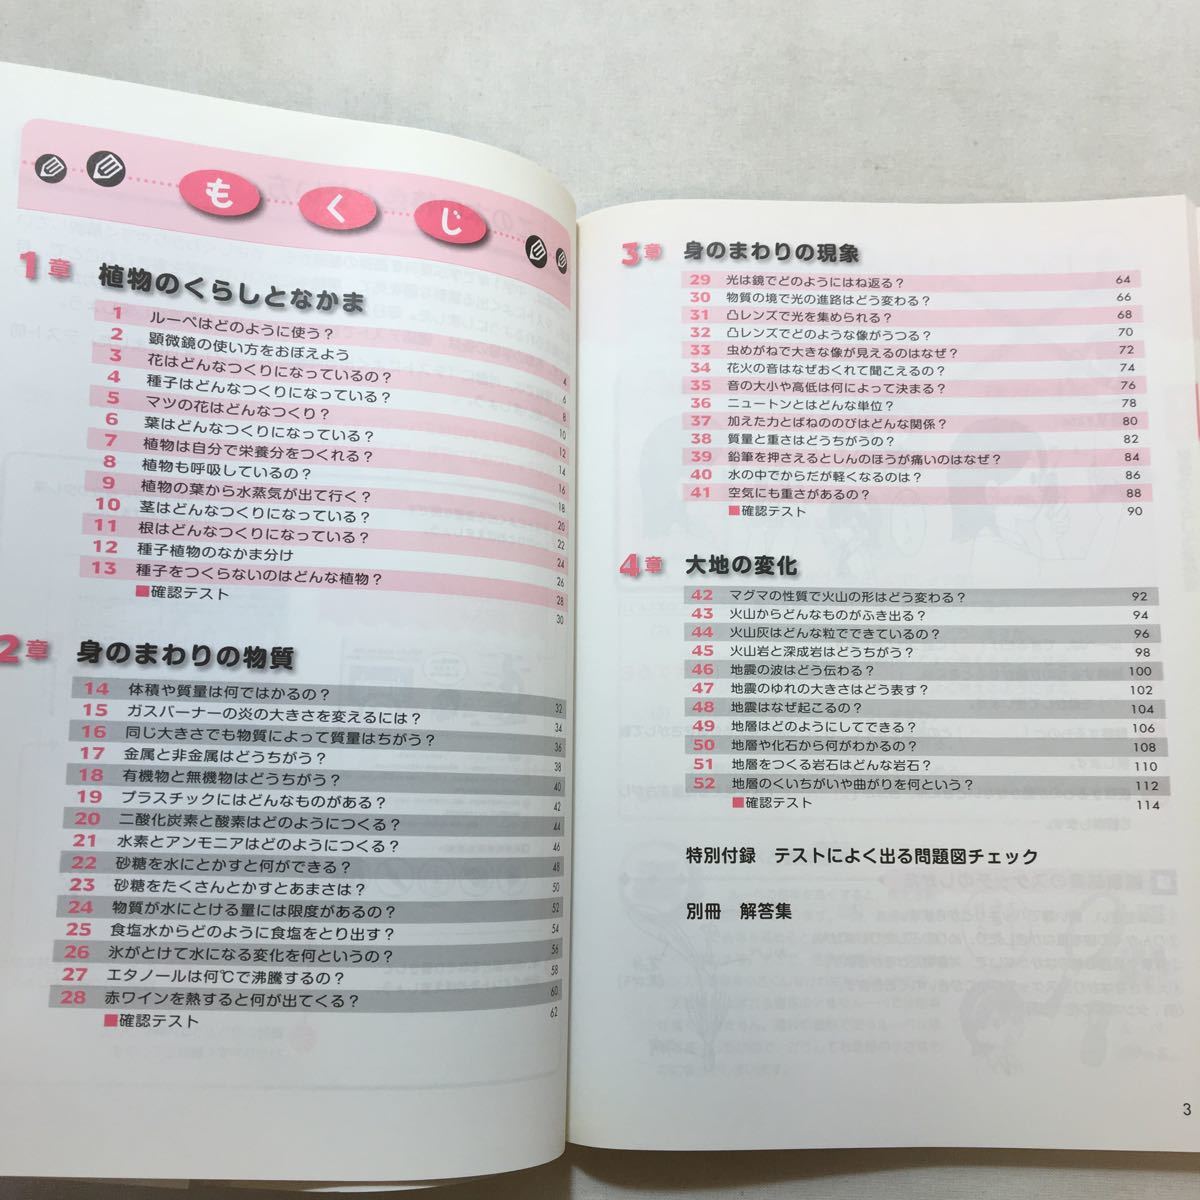 もくじ
1章 植物のくらしとなかま
1 ルーペはどのように使う？ 4
2 顕微鏡の使い方をおぼえよう 6
3 花はどんなつくりになっているの？ 8
4 種子はどんなつくりになっている？ 10
5 マツの花はどんなつくり？ 12
6 葉はどんなつくりになっている？ 14
7 植物は自分で栄養分をつくれる？ 16
8 植物も呼吸しているの？ 18
9 植物の葉から水蒸気が出て行く？ 20
10 茎はどんなつくりになっている？ 22
11 根はどんなつくりになっている？ 24
12 種子植物のなかま分け 26
13 種子をつくらないのはどんな植物？ 28
■確認テスト 30
2章 身のまわりの物質
14 体積や質量は何ではかるの？ 32
15 ガスバーナーの炎の大きさを変えるには？ 34
16 同じ大きさでも物質によって質量はちがう？ 36
17 金属と非金属はどうちがう？ 38
18 有機物と無機物はどうちがう？ 40
19 プラスチックにはどんなものがある？ 42
20 二酸化炭素と酸素はどのようにつくる？ 44
21 水素とアンモニアはどのようにつくる？ 46
22 砂糖を水にとかすと何ができる？ 48
23 砂糖をたくさんとかすとあまさは？ 50
24 物質が水にとける量には限度があるの？ 52
25 食塩水からどのように食塩をとり出す？ 54
26 氷がとけて水になる変化を何というの？ 56
27 エタノールは何℃で沸騰するの？ 58
28 赤ワインを熱すると何が出てくる？ 60
■確認テスト 62
3章 身のまわりの現象
29 光は鏡でどのようにはね返る？ 64
30 物質の境で光の進路はどう変わる？ 66
31 凸レンズで光を集められる？ 68
32 凸レンズでどのような像がうつる？ 70
33 虫めがねで大きな像が見えるのはなぜ？ 72
34 花火の音はなぜおくれて聞こえるの？ 74
35 音の大小や高低は何によって決まる？ 76
36 ニュートンとはどんな単位？ 78
37 加えた力とばねののびはどんな関係？ 80
38 質量と重さはどうちがうの？ 82
39 鉛筆を押さえるとしんのほうが痛いのはなぜ？ 84
40 水の中でからだが軽くなるのは？ 86
41 空気にも重さがあるの？ 88
■確認テスト 90
4章 大地の変化
42 マグマの性質で火山の形はどう変わる？ 92
43 火山からどんなものがふき出る？ 94
44 火山灰はどんな粒でできているの？ 96
45 火山岩と深成岩はどうちがう？ 98
46 地震の波はどう伝わる？ 100
47 地震のゆれの大きさはどう表す？ 102
48 地震はなぜ起こるの？ 104
49 地層はどのようにしてできる？ 106
50 地層や化石から何がわかるの？ 108
51 地層をつくる岩石はどんな岩石？ 110
52 地層のくいちがいや曲がりを何という？ 112
■確認テスト 114
特別付録 テストによく出る問題図チェック
別冊 解答集
3